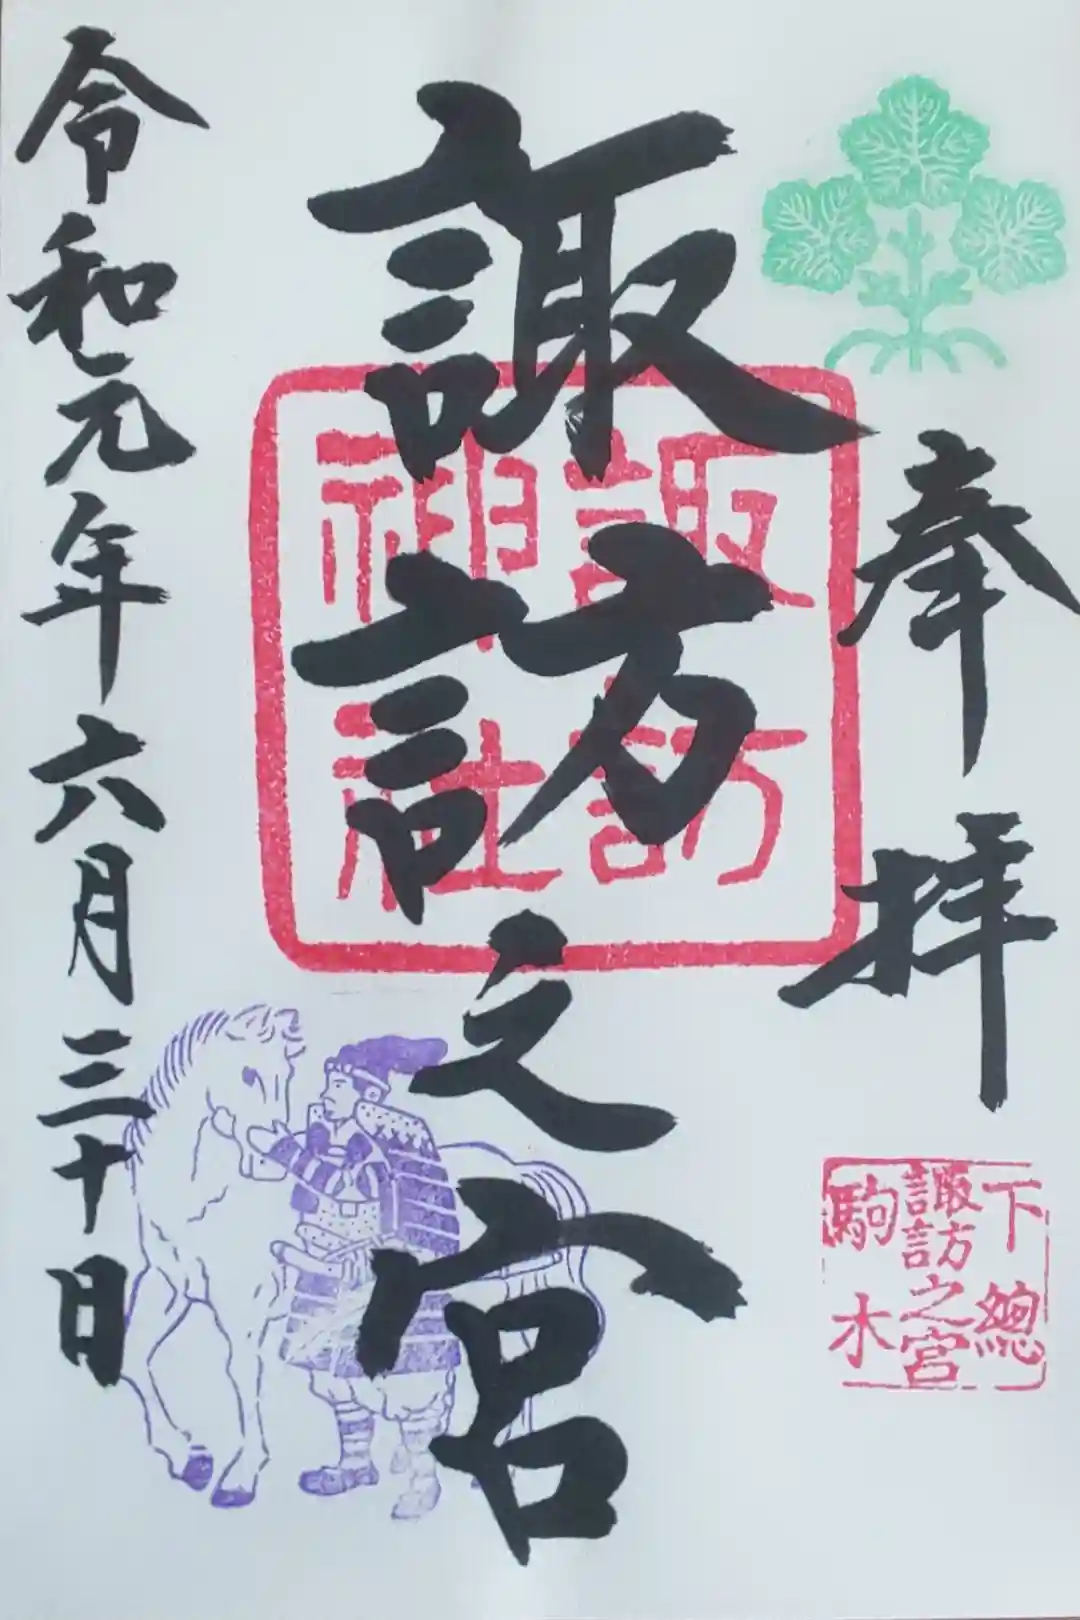 奉拝
下總
諏訪之宮
駒木
諏訪之宮
諏訪
神社
令和元年六月三十日